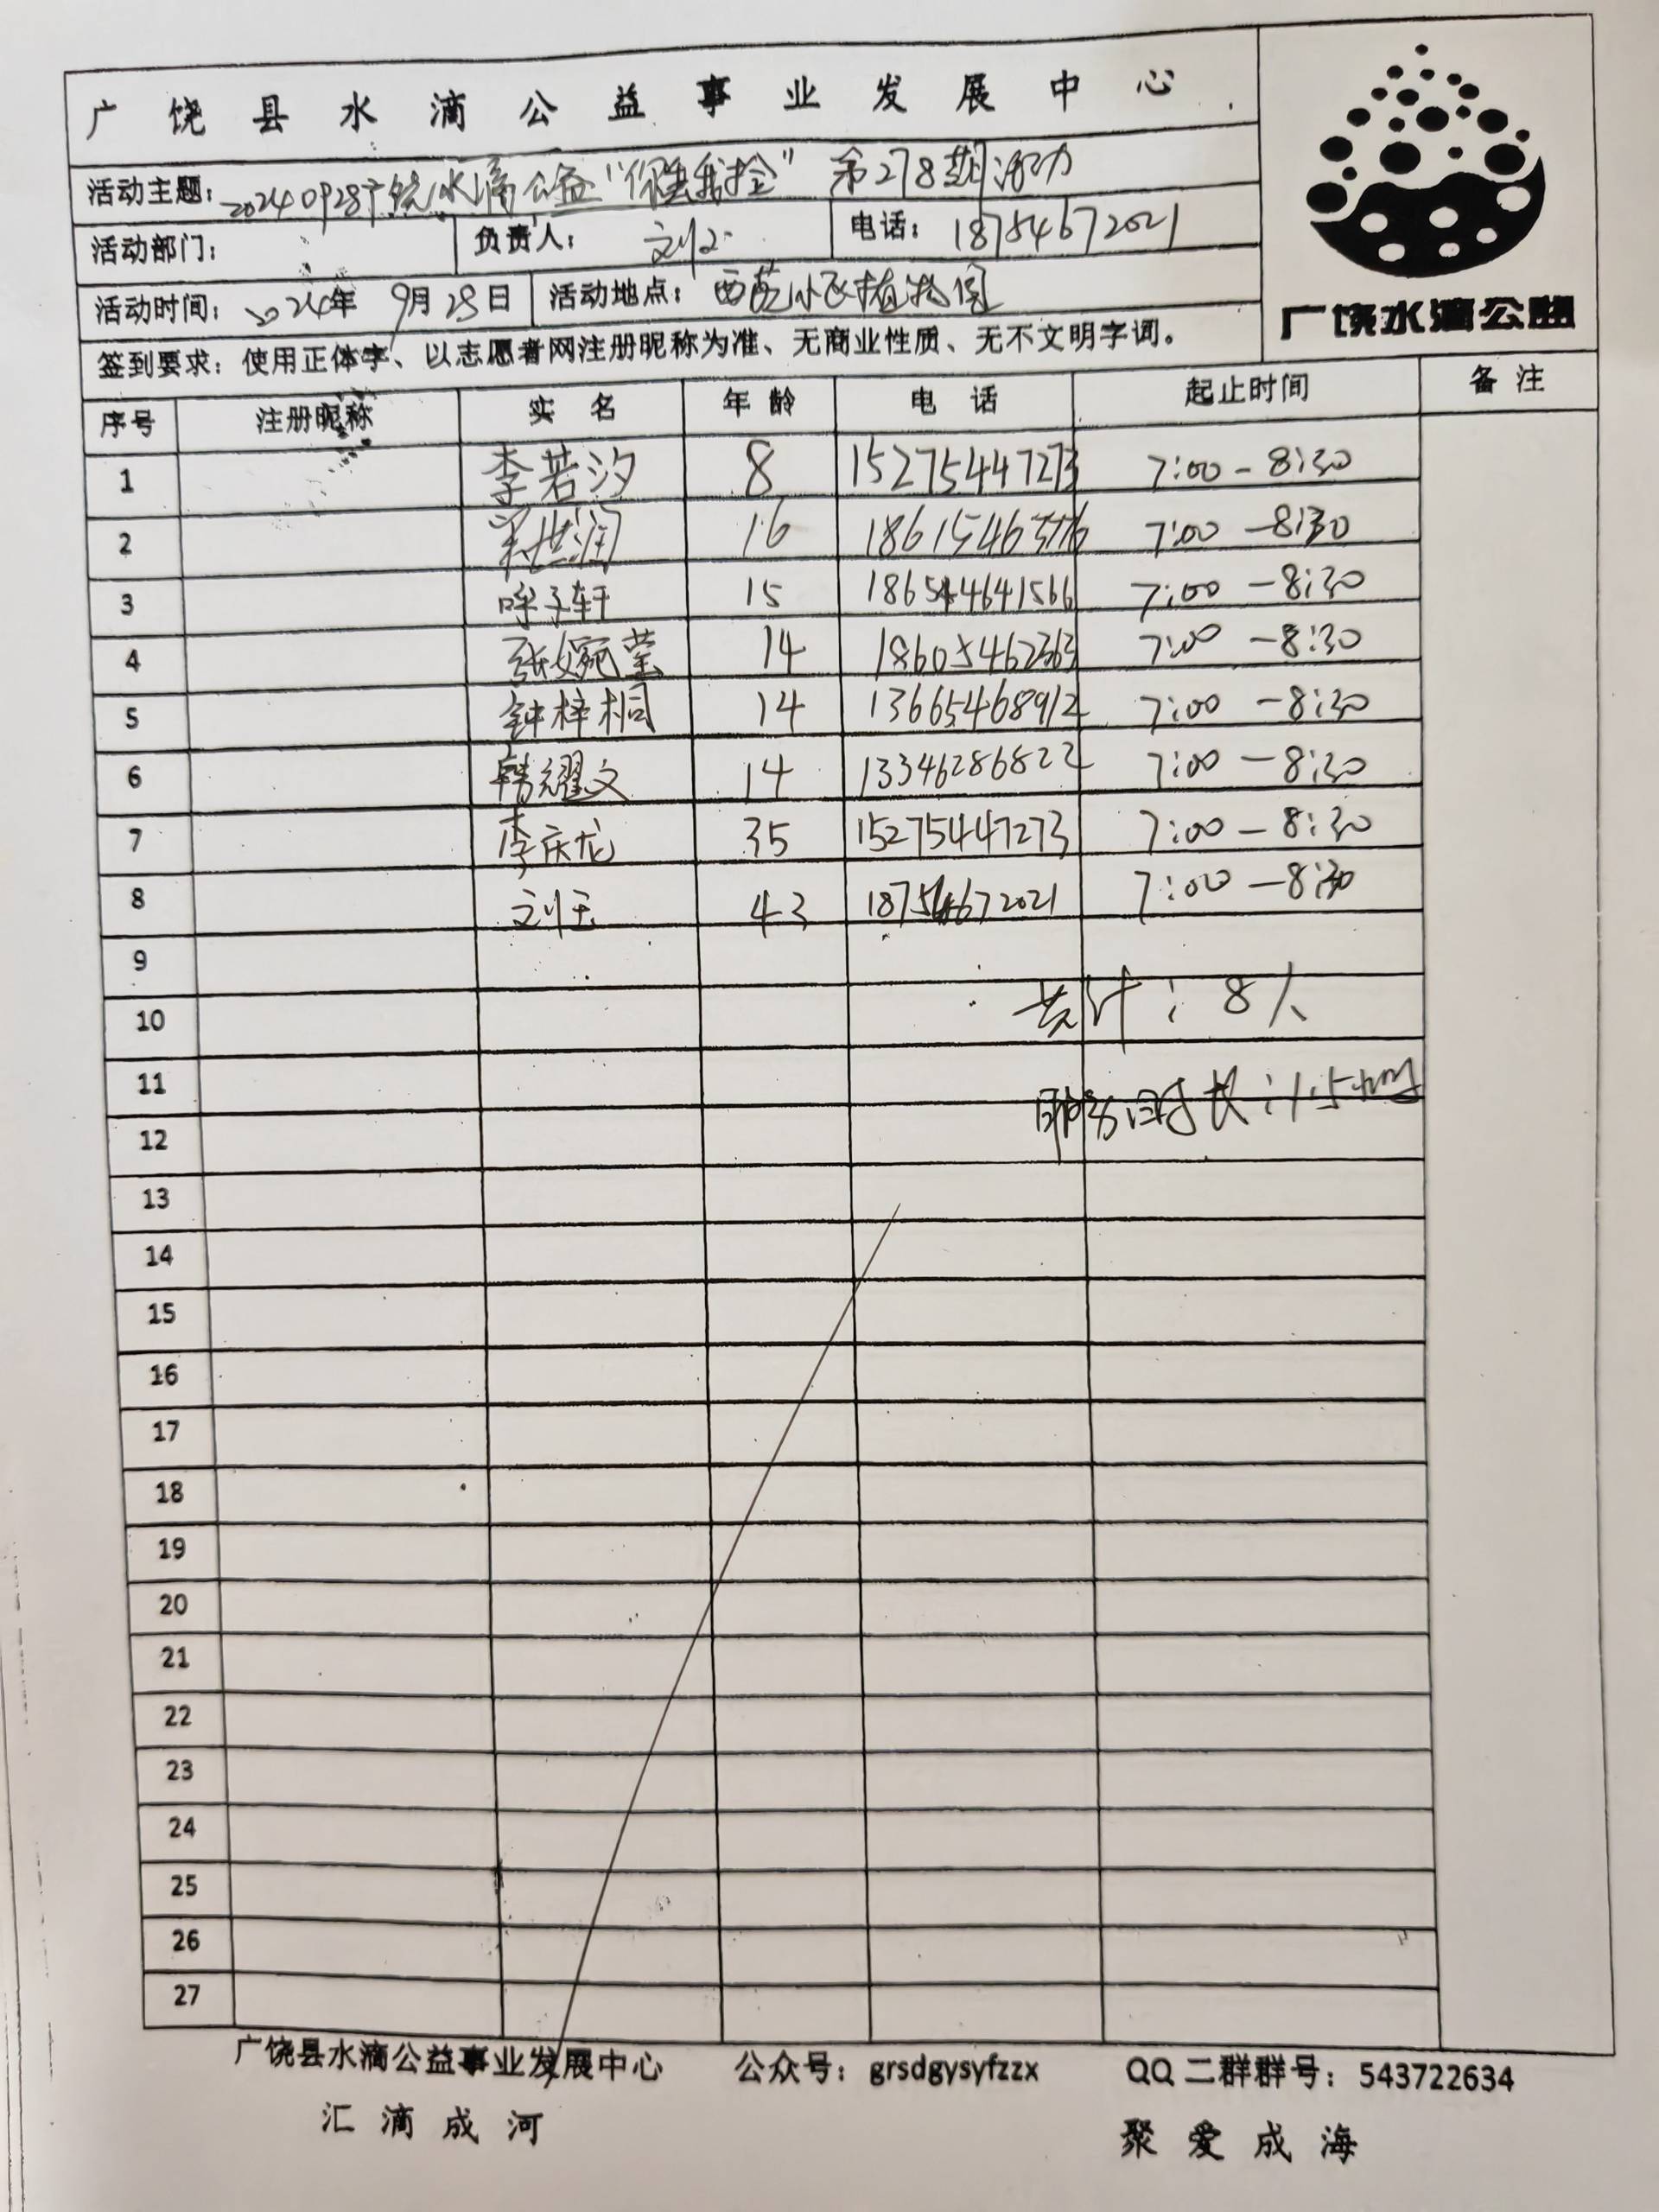 广饶县水滴公益事业发展中心
活动主题：20240928广饶水滴公益“你丢我捡”第278期活动
活动部门： 负责人：刘玉 电话：18754672021
活动时间：2024年9月28日 活动地点：西苑小区植物园
广饶水滴公益
签到要求：使用正体字、以志愿者网注册昵称为准、无商业性质、无不文明字词。
序号 注册昵称 实名 年龄 电话 起止时间 备注
1 李若汐 8 15275447273 7:00-8:30
2 16 7:00-8:30
3 呼子轩 15 18654641566 7:00-8:30
4 张婉莹 14 7:00-8:30
5 钟梓桐 14 13665468912 7:00-8:30
6 韩耀文 14 13346286822 7:00-8:30
7 李庆龙 35 15275447273 7:00-8:30
8 刘玉 43 18754672021 7:00-8:30
9
10 共计：8人
11
服务时长：1.5小时
12
13
14
15
16
17
18
19
20
21
22
23
24
25
26
27
广饶县水滴公益事业发展中心 公众号：grsdgysyfzzx QQ二群群号：543722634
汇滴成河 聚爱成海